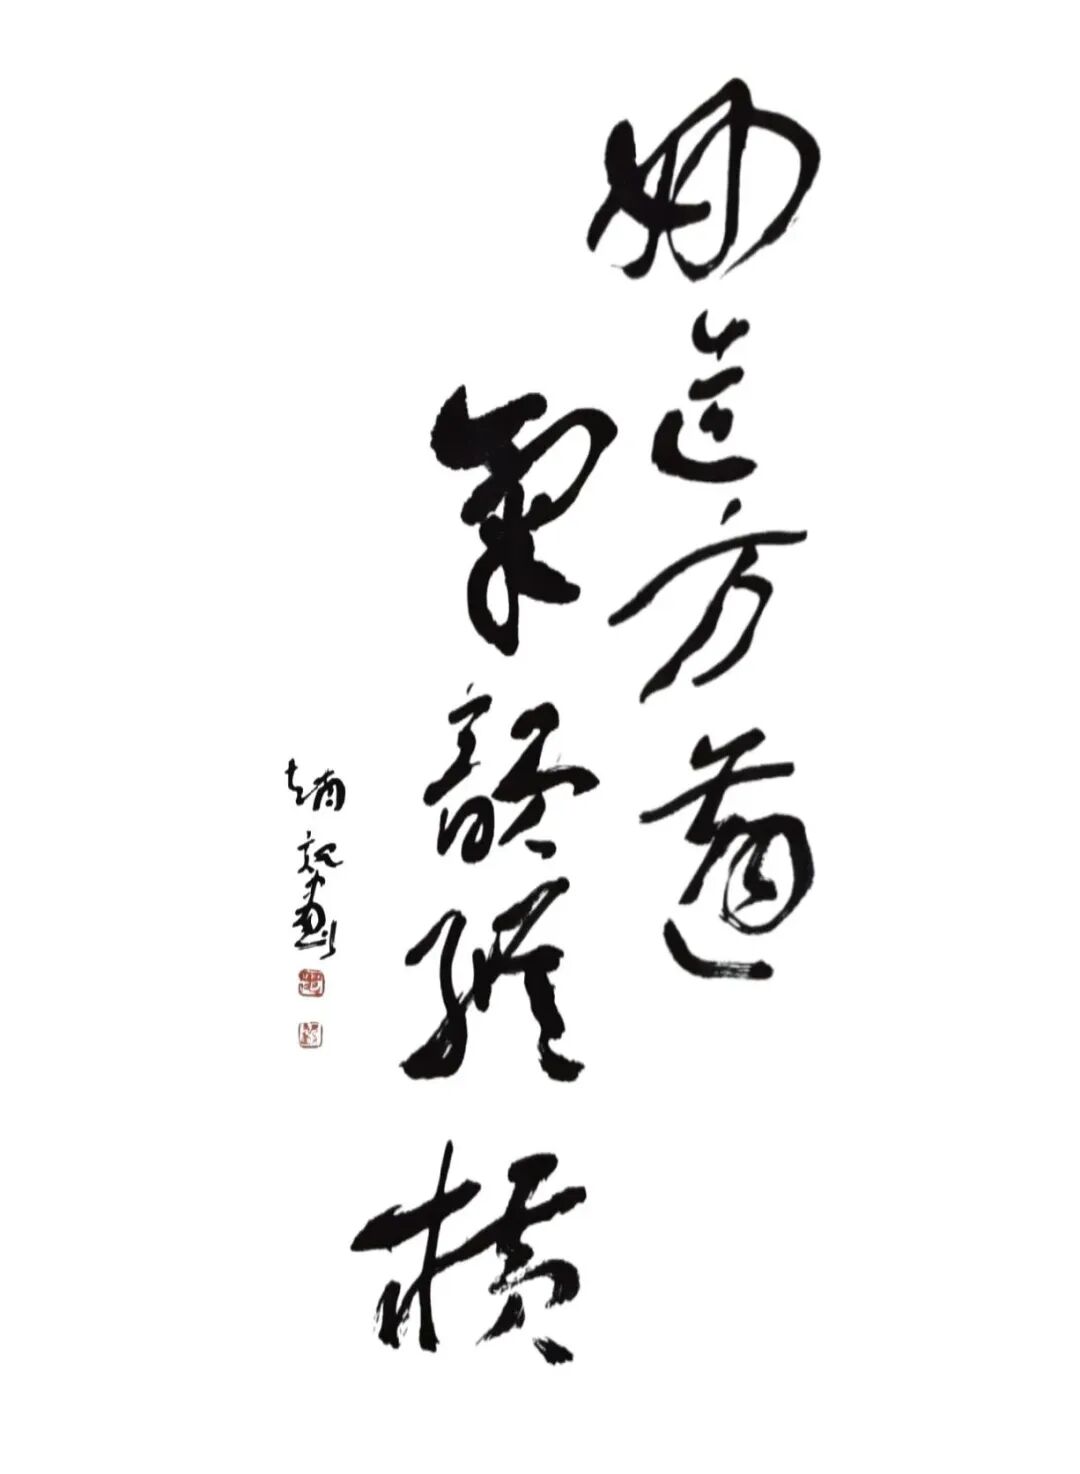 妙造方遒
氣韻縱橫